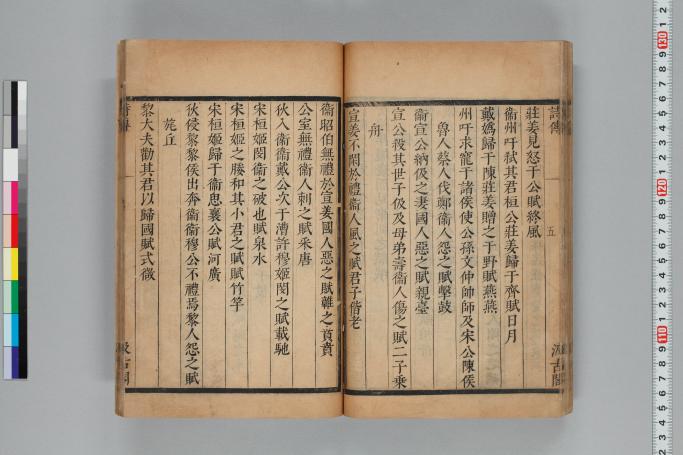 詩傳
五
汲古閣
莊姜見怒于公賦終風
衞州吁弒其君桓公莊姜歸于齊賦日月
戴媯歸于陳莊姜贈之于野賦燕燕
州吁求寵于諸侯使公孫文仲帥師及宋公陳侯
魯人蔡人伐鄭衞人怨之賦擊鼓
衞宣公納伋之妻國人惡之賦親臺
宣公殺其世子伋及母弟壽衞人傷之賦二子乘
舟
宣姜不閑於禮衞人風之賦君子偕老
衞昭伯無禮於宣姜國人惡之賦鶉之賁賁
公室無禮衞人刺之賦采唐
狄入衞衞戴公次于漕許穆姬閔之賦載馳
宋桓姬閔衞之破也賦泉水
宋桓姬之媵和其小君之賦賦竹竿
宋桓姬歸于衞思襄公賦河廣
狄侵黎黎侯出奔衞衞穆公不禮焉黎人怨之賦
旄丘
黎大夫勸其君以歸國賦式微
汲古閣
130
120
110